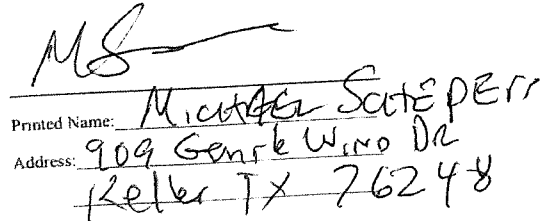 MS
Printed Name: Michael Schepers
Address: 909 Gentle Wind Dr
Keller TX 76248